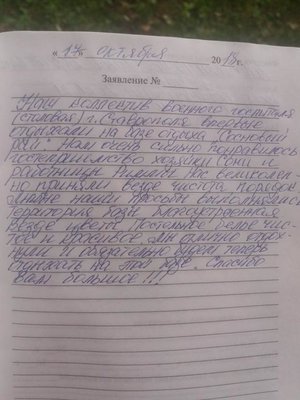 « 17 » октября 2018 г.
Заявление №
Наш коллектив военного госпиталя
(столовая) г. Ставрополя впервые
отдыхали на базе отдыха „Сосновый
рай". Нам очень сильно понравилось
гостеприимство хозяйки Сони и
работницы Риммы. Нас великолеп-
но приняли везде чистота, порядок
наши просьбы выполнялись
Территория базы благоустроенная
Везде цветы. Постельное белье чис-
тое и красивое. Мы отлично отдох-
нули и обязательно будем теперь
отдыхать на этой базе. Спасибо
вам большое!!!